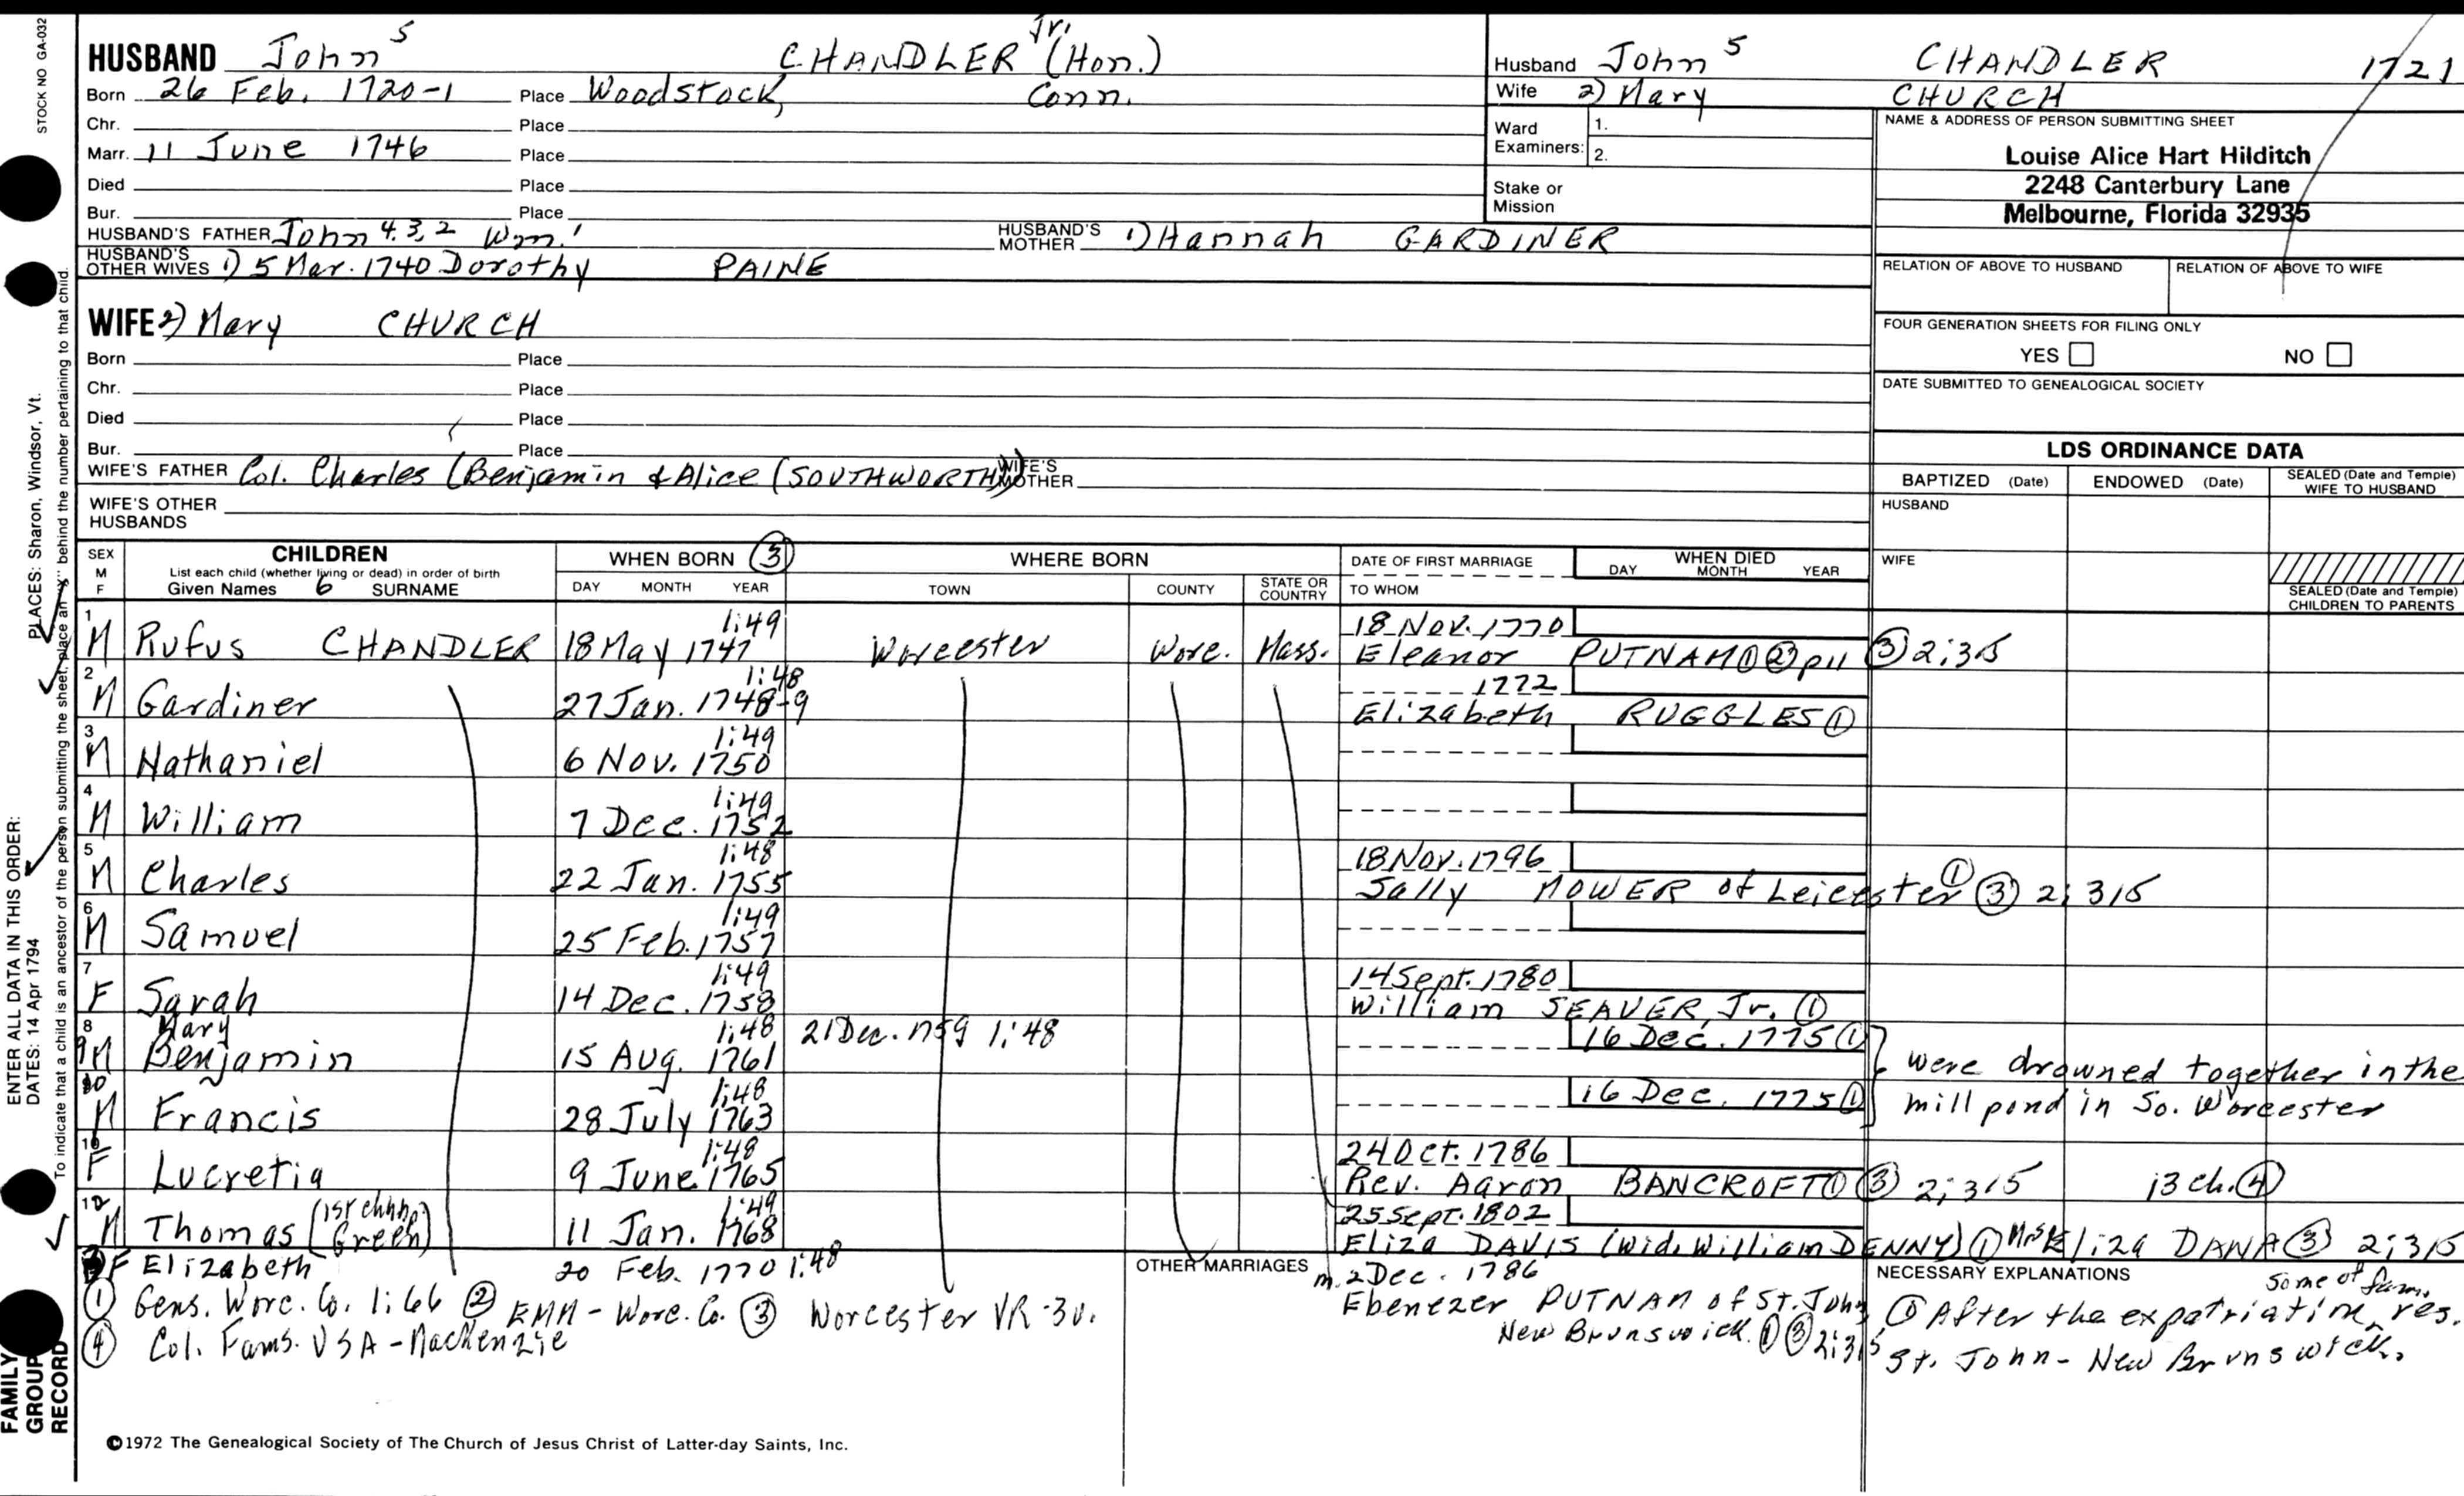 STOCK NO GA-032
HUSBAND John 5 CHANDLER Jr. (Hon.)
Born 26 Feb. 1720-1 Place Woodstock, Conn.
Chr. Place
Marr. 11 June 1746 Place
Died Place
Bur. Place
HUSBAND'S FATHER John 4.3,2 Wm.1 HUSBAND'S MOTHER 1) Hannah GARDINER
HUSBAND'S OTHER WIVES 1) 5 Mar. 1740 Dorothy PAINE
WIFE 2) Mary CHURCH
Born Place
Chr. Place
Died Place
Bur. Place
WIFE'S FATHER Col. Charles (Benjamin & Alice (SOUTHWORTH)) WIFE'S MOTHER
WIFE'S OTHER HUSBANDS
Husband John 5 CHANDLER 1721
Wife 2) Mary CHURCH
Ward Examiners: 1.
2.
Stake or Mission
NAME & ADDRESS OF PERSON SUBMITTING SHEET
Louise Alice Hart Hilditch
2248 Canterbury Lane
Melbourne, Florida 32935
RELATION OF ABOVE TO HUSBAND RELATION OF ABOVE TO WIFE
FOUR GENERATION SHEETS FOR FILING ONLY
YES NO
DATE SUBMITTED TO GENEALOGICAL SOCIETY
LDS ORDINANCE DATA
BAPTIZED (Date) ENDOWED (Date) SEALED (Date and Temple) WIFE TO HUSBAND
HUSBAND
WIFE
SEALED (Date and Temple) CHILDREN TO PARENTS
SEX M F CHILDREN WHEN BORN ③ WHERE BORN DATE OF FIRST MARRIAGE WHEN DIED
List each child (whether living or dead) in order of birth
Given Names 6 SURNAME DAY MONTH YEAR TOWN COUNTY STATE OR COUNTRY TO WHOM DAY MONTH YEAR
1 1:49 18 Nov. 1770
M Rufus CHANDLER 18 May 1747 Worcester Worc. Mass. Eleanor PUTNAM ① ② p11 ③ 2:315
2 1:48 1772
M Gardiner 27 Jan. 1748-9 Elizabeth RUGGLES ①
3 1:49
M Nathaniel 6 Nov. 1750
4 1:49
M William 7 Dec. 1752
5 1:48 18 Nov. 1796
M Charles 22 Jan. 1755 Sally MOWER of Leicester ① ③ 2:315
6 1:49
M Samuel 25 Feb. 1757
7 1:49 14 Sept. 1780
F Sarah 14 Dec. 1758 William SEAVER, Jr. ①
8 Mary 1:48 21 Dec. 1759 1:48 16 Dec. 1775 ①
9 M Benjamin 15 Aug. 1761 were drowned together in the
10 1:48 16 Dec. 1775 ① mill pond in So. Worcester
M Francis 28 July 1763
10 1:48 24 Oct. 1786
F Lucretia 9 June 1765 Rev. Aaron BANCROFT ① ③ 2:315 13 ch. ④
12 1:49 25 Sept. 1802
M Thomas Green) 11 Jan. 1768 Eliza DAVIS (wid. William DENNY) ① Mrs Eliza DANA ③ 2:315
F Elizabeth 20 Feb. 1770 1:48 OTHER MARRIAGES m. 2 Dec. 1786
Ebenezer PUTNAM of St. John,
New Brunswick. ① ③ 2:315
① Gens. Worc. Co. 1:66 ② EMM - Worc. Co. ③ Worcester VR - 3v.
④ Col. Fams. USA - MacKenzie
NECESSARY EXPLANATIONS
some of fam.
① After the expatriation res.
St. John - New Brunswick.
©1972 The Genealogical Society of The Church of Jesus Christ of Latter-day Saints, Inc.
FAMILY GROUP RECORD
ENTER ALL DATA IN THIS ORDER:
DATES: 14 Apr 1794 PLACES: Sharon, Windsor, Vt.
To indicate that a child is an ancestor of the person submitting the sheet, place an "X" behind the number pertaining to that child.